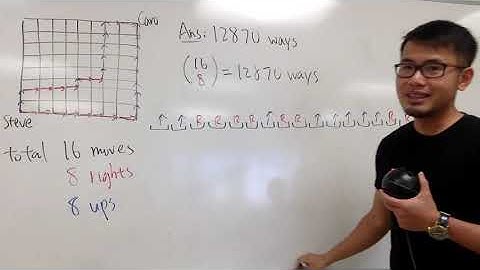 Caro
Steve
Ans: 12870 ways
(16 8) = 12870 ways
total 16 moves
8 rights
8 ups